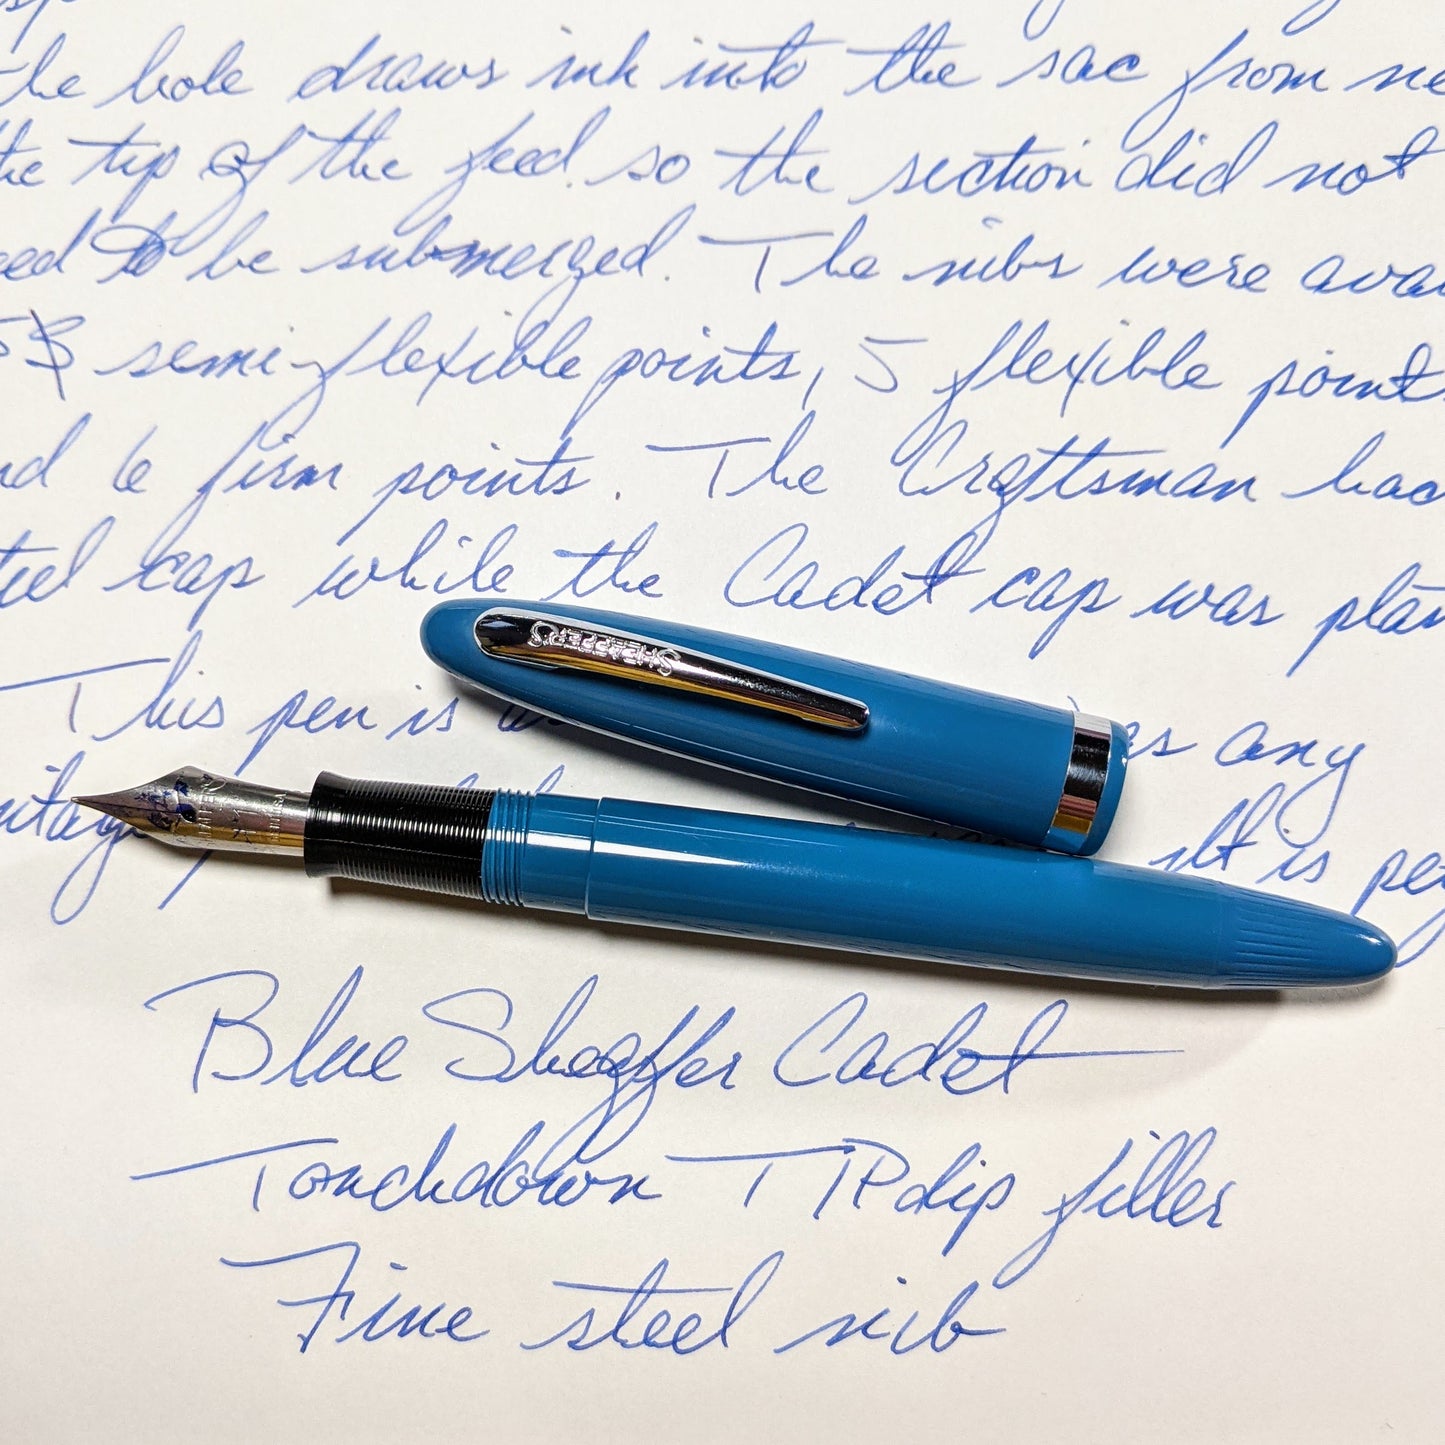 he hole draws ink into the sac from ne
the tip of the feed so the section did not
eed to be submerged. The nibs were avai
5$ semi-flexible points, 5 flexible points
nd 6 firm points. The Craftsman had
teel cap while the Cadet cap was plas
SHEAFFER'S
This pen is any
it is pe
Blue Sheaffer Cadet
Touchdown TIP dip filler
Fine steel nib